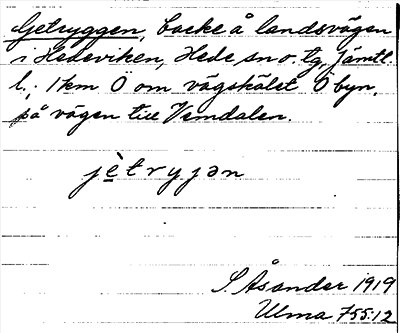 Getryggen, backe å landsvägen
i Hedeviken, Hede sn o. tg, Jämtl.
l.; 1 km Ö om vägskälet Ö byn,
på vägen till Vemdalen.
jètryjən
S Åsander 1919
Ulma 755:12